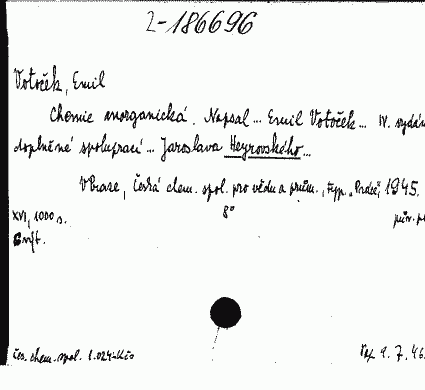 2-186696
Votoček, Emil
Chemie anorganická. Napsal... Emil Votoček... IV. vydán
doplněné spoluprací... Jaroslava Heyrovského...
V Praze, Česká chem. spol. pro vědu a prům., typ. „Práce“, 1945.
XVI, 1000 s. 8° pův. p
Čes. chem. spol. 1.024-Kčs 9.7.46